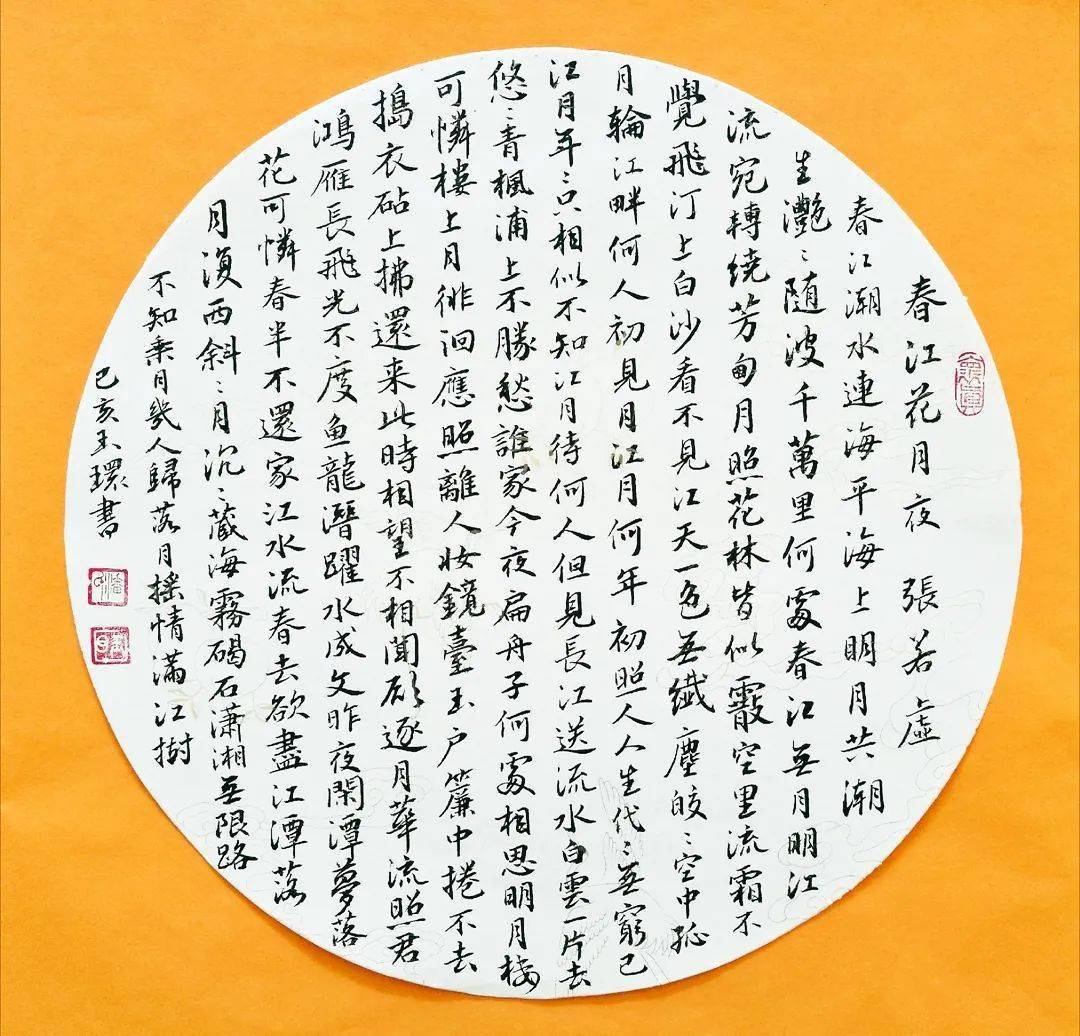 春江花月夜 張若虛
春江潮水連海平海上明月共潮
生灧〻随波千萬里何處春江無月明江
流宛轉繞芳甸月照花林皆似霰空里流霜不
覺飛汀上白沙看不見江天一色無纖塵皎〻空中孤
月輪江畔何人初見月江月何年初照人人生代〻無窮已
江月年〻只相似不知江月待何人但見長江送流水白雲一片去
悠〻青楓浦上不勝愁誰家今夜扁舟子何處相思明月楼
可憐樓上月徘徊應照離人妝鏡臺玉户簾中捲不去
搗衣砧上拂還来此時相望不相聞願逐月華流照君
鴻雁長飛光不度魚龍潛躍水成文昨夜閑潭夢落
花可憐春半不還家江水流春去欲盡江潭落
月復西斜〻月沉〻藏海霧碣石瀟湘無限路
不知乘月幾人歸落月摇情滿江樹
己亥玉環書